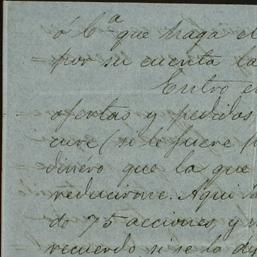 ó Cª que haga el
por su cuenta la
Entro e
ofertas y pedidos
cure (si le fuere
dinero que la que
reducirone. Aqui
do 75 acciones y
recuerdo si se lo dy